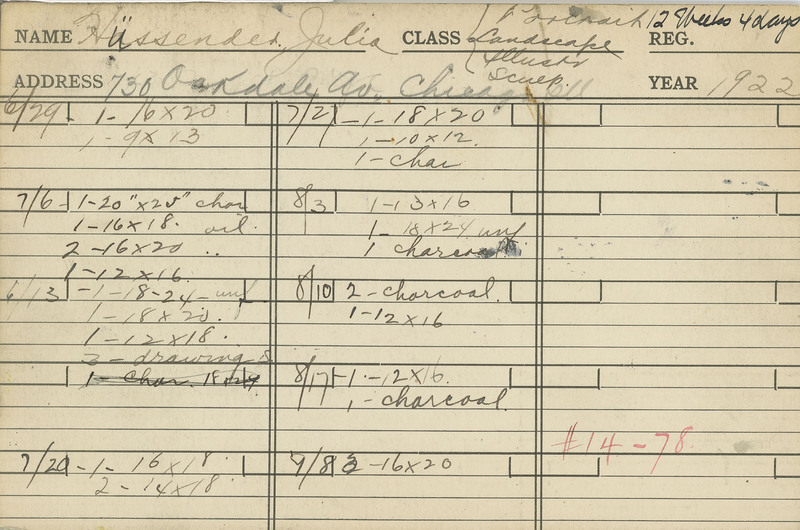 NAME Hüssender, Julia CLASS Portrait 12 Weeks 4 days REG.
Landscape
Illustr
Sculp.
ADDRESS 730 Oakdale Av. Chicago Ill YEAR 1922
6/29 1- 16X20
1- 9X13
7/6 1-20"X25" char
1-16X18. oil.
2-16X20 ..
1-12X16.
6/13 -1-18-24- unf
1-18X20.
1-12X18.
3- drawings
1- Char. 18X24
7/20 -1- 16X18.
2-14X18
7/27 -1-18X20
1-10X12.
1- char
8/3 1-13X16
1-18X24 unf
1 charcoal
8/10 2-charcoal.
1-12X16
8/17 -1.-12X16.
1- charcoal.
9/8 3-16X20
#14-78